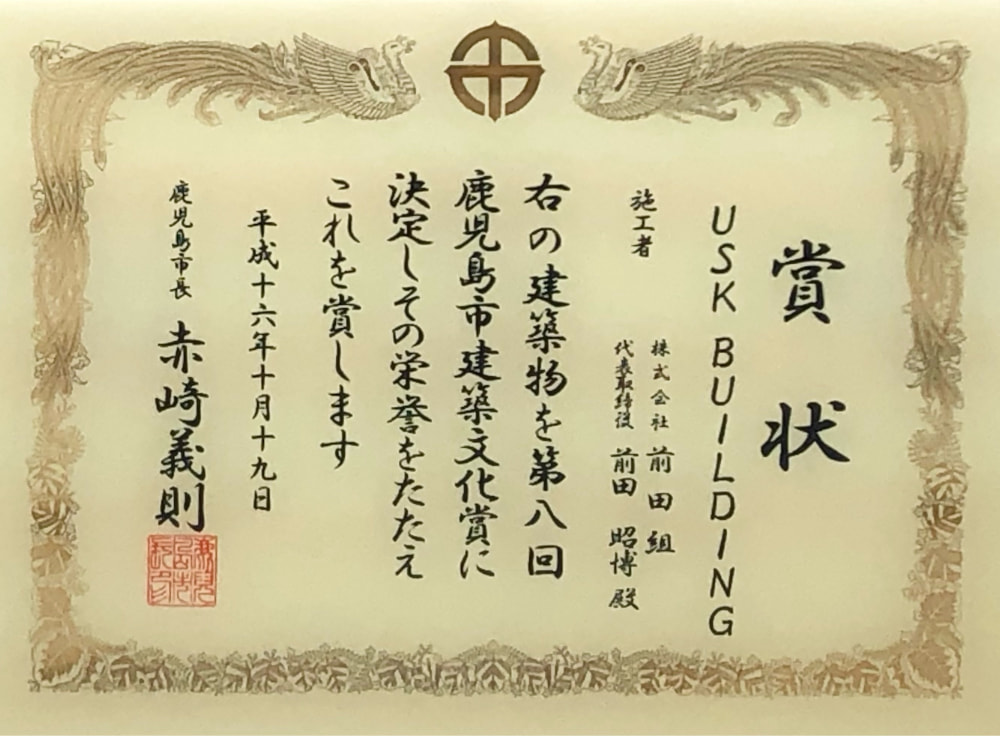 賞状
USK BUILDING
施工者
株式会社 前田組
代表取締役 前田 昭博 殿
右の建築物を第八回
鹿児島市建築文化賞に
決定しその栄誉をたたえ
これを賞します
平成十六年十月十九日
鹿児島市長 赤崎義則